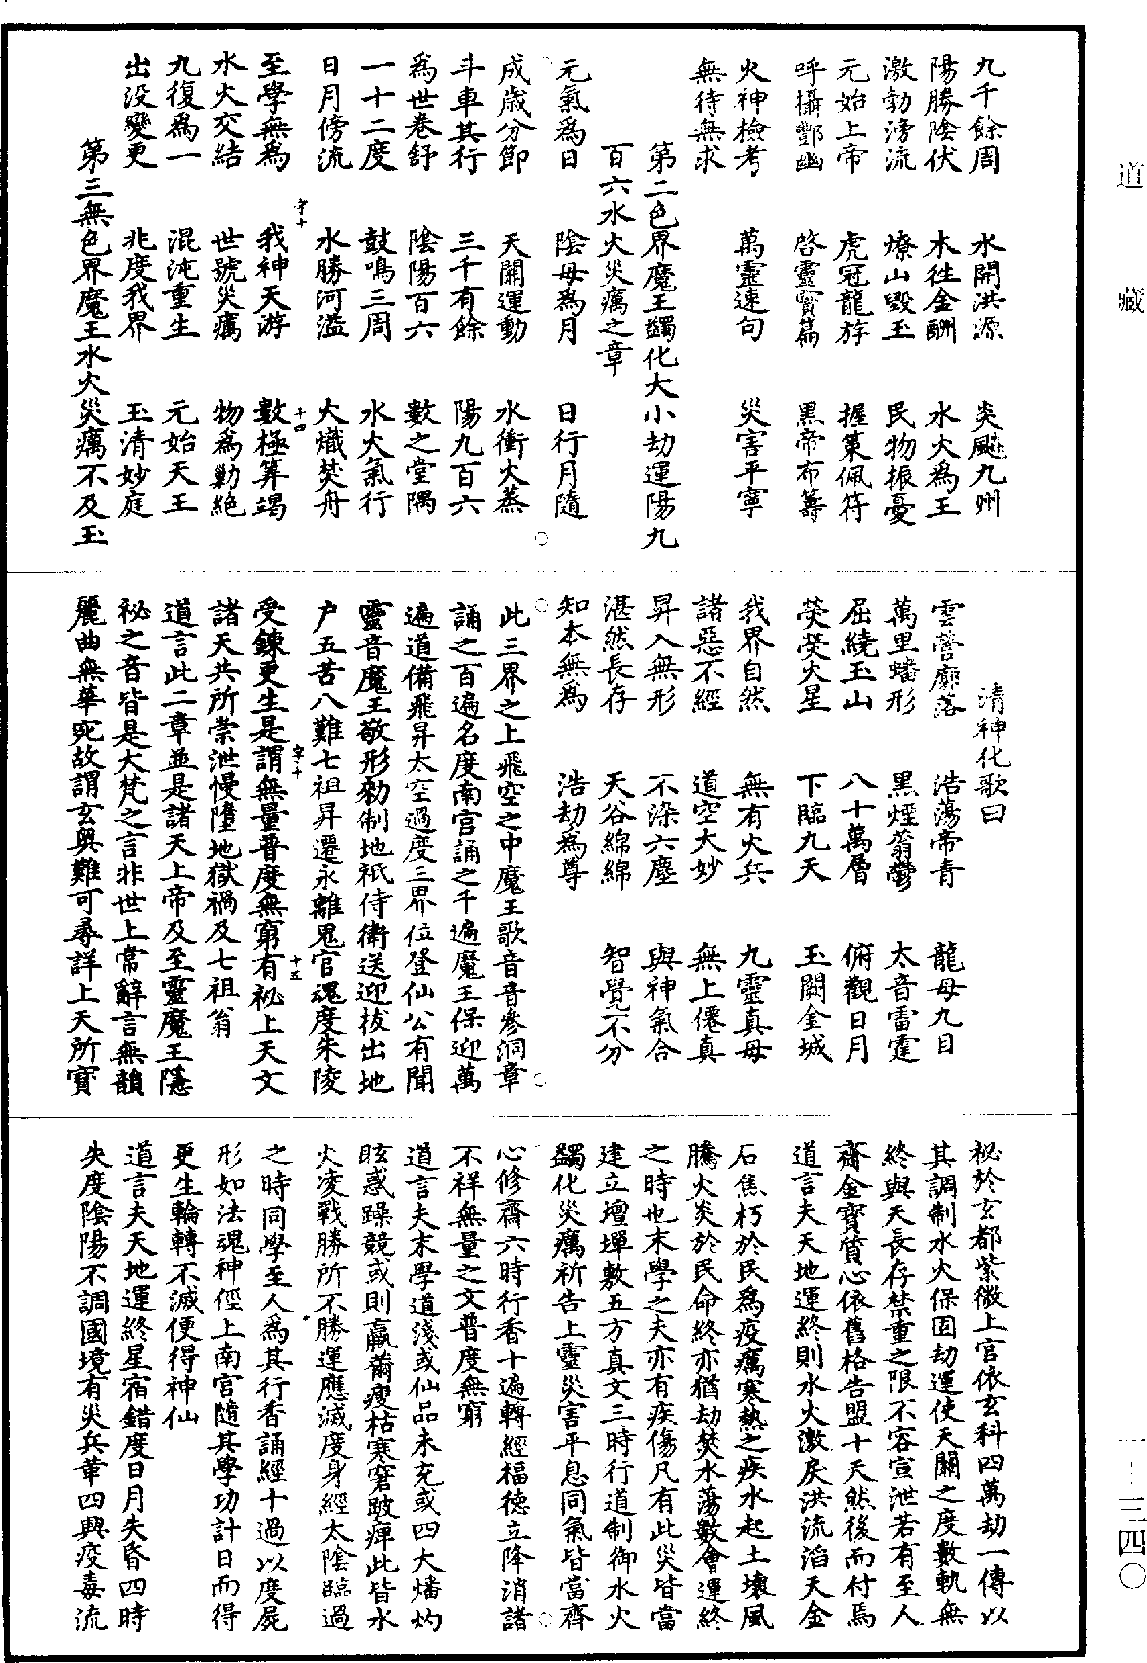 道藏
九千餘周　水開洪源　炎飈九州
陽勝陰伏　木徃金酬　水火為王
激勃滂流　燎山毀玉　民物振憂
元始上帝　虎冠龍斿　握策佩符
呼攝酆幽　啓靈寶篇　黑帝布籌
火神檢考　萬靈速句　災害平寧
無待無求
第二色界魔王蠲化大小劫運陽九
百六水火災癘之章
元氣為日　陰母為月　日行月隨
成歲分節　天關運動　水衝火蒸
斗車其行　三千有餘　陽九百六
為世卷舒　陰陽百六　數之堂隅
一十二度　鼓鳴三周　水火氣行
日月傍流　水勝河溢　火熾焚舟
字十　十四
至學無為　我神天游　數極筭竭
水火交結　世號災癘　物為勦絶
九復為一　混沌重生　元始天王
出没變更　兆度我界　玉清妙庭
第三無色界魔王水火災癘不及玉
清神化歌曰
雲營廓落　浩蕩帝青　龍母九目
萬里蟠形　黑煙蓊鬱　太音雷霆
屈繞玉山　八十萬層　俯觀日月
熒熒火星　下臨九天　玉闕金城
我界自然　無有火兵　九靈真母
諸惡不經　道空大妙　無上僊真
昇入無形　不染六塵　與神氣合
湛然長存　天谷綿綿　智覺不分
知本無為　浩劫為尊
此三界之上飛空之中魔王歌音音參洞章
誦之百遍名度南宫誦之千遍魔王保迎萬
遍道備飛昇太空過度三界位登仙公有聞
靈音魔王敬形勑制地衹侍衛送迎拔出地
户五苦八難七祖昇遷永離鬼官魂度朱陵
受鍊更生是謂無量普度無窮有祕上天文
字十　十五
諸天共所崇泄慢墮地獄禍及七祖翁
道言此二章並是諸天上帝及至靈魔王隱
祕之音皆是大梵之言非世上常辭言無韻
麗曲無華宛故謂玄奥難可尋詳上天所寳
祕於玄都紫微上宫依玄科四萬劫一傳以
其調制水火保固劫運使天關之度數軌無
終與天長存禁重之限不容宣泄若有至人
齎金寳質心依舊格告盟十天然後而付焉
道言夫天地運終則水火激戾洪流滔天金
石焦朽於民為疫癘寒熱之疾水起土壊風
騰火炎於民命終亦猶劫焚水蕩數會運終
之時也末學之夫亦有疾傷凡有此災皆當
建立壇墠敷五方真文三時行道制御水火
蠲化災癘祈告上靈災害平息同氣皆當齊
心修齋六時行香十遍轉經福德立降消諸
不祥無量之文普度無窮
道言夫末學道淺或仙品未充或四大燔灼
眩惑躁競或則羸薾瘦枯寒窘跛痺此皆水
火凌戰勝所不勝運應滅度身經太陰臨過
之時同學至人為其行香誦經十過以度屍
形如法魂神徑上南宫隨其學功計日而得
更生輪轉不滅便得神仙
道言夫天地運終星宿錯度日月失昏四時
失度陰陽不調國境有災兵革四興疫毒流
一-三四〇